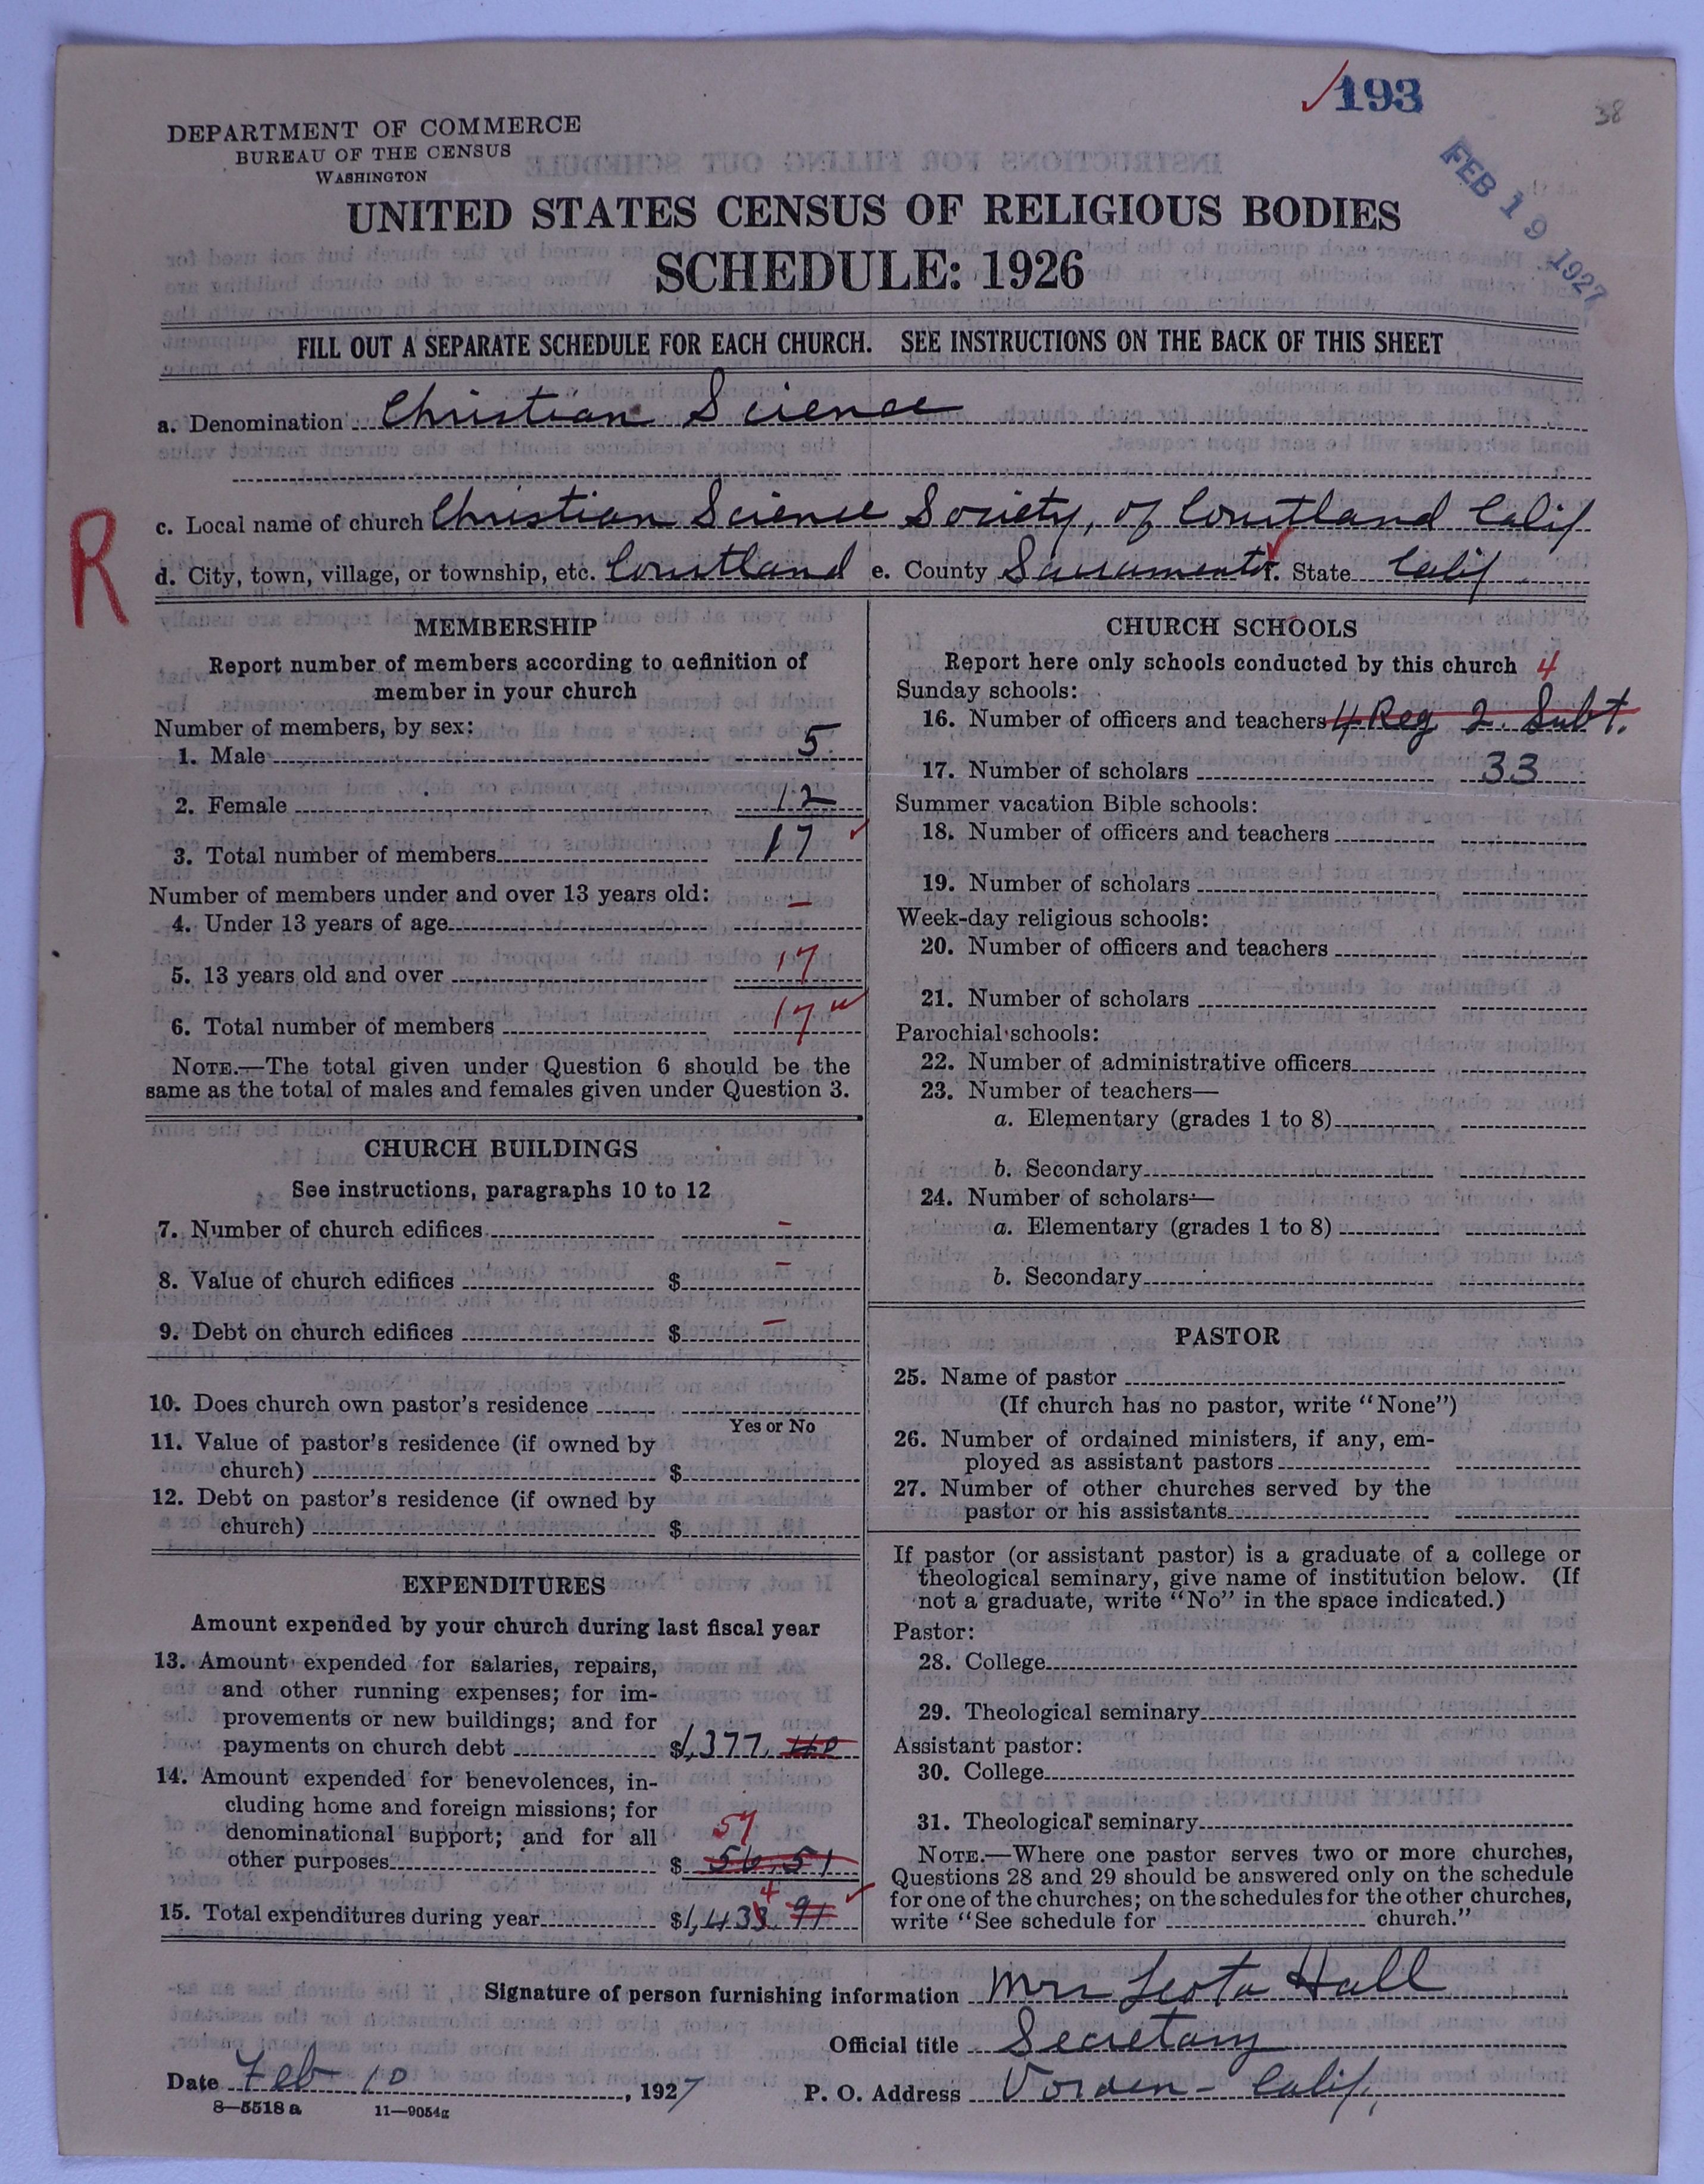 193
38
FEB 19 1927
DEPARTMENT OF COMMERCE
BUREAU OF THE CENSUS
WASHINGTON
UNITED STATES CENSUS OF RELIGIOUS BODIES
SCHEDULE: 1926
FILL OUT A SEPARATE SCHEDULE FOR EACH CHURCH. SEE INSTRUCTIONS ON THE BACK OF THIS SHEET
a. Denomination Christian Science
c. Local name of church Christian Science Society, of Courtland Calif
R
d. City, town, village, or township, etc. Courtland e. County Sacramento f. State Calif
MEMBERSHIP
Report number of members according to definition of
member in your church
Number of members, by sex:
1. Male 5
2. Female 12
3. Total number of members 17
Number of members under and over 13 years old:
4. Under 13 years of age –
5. 13 years old and over 17
6. Total number of members 17
NOTE.—The total given under Question 6 should be the
same as the total of males and females given under Question 3.
CHURCH BUILDINGS
See instructions, paragraphs 10 to 12
7. Number of church edifices –
8. Value of church edifices $ –
9. Debt on church edifices $ –
10. Does church own pastor's residence
Yes or No
11. Value of pastor's residence (if owned by
church) $
12. Debt on pastor's residence (if owned by
church) $
EXPENDITURES
Amount expended by your church during last fiscal year
13. Amount expended for salaries, repairs,
and other running expenses; for im-
provements or new buildings; and for
payments on church debt $1,377.
14. Amount expended for benevolences, in-
cluding home and foreign missions; for
denominational support; and for all 57
other purposes $ 56.51
4
15. Total expenditures during year $1,433 91
CHURCH SCHOOLS
Report here only schools conducted by this church 4
Sunday schools:
16. Number of officers and teachers 4 Reg 2. Subt.
17. Number of scholars 33
Summer vacation Bible schools:
18. Number of officers and teachers
19. Number of scholars
Week-day religious schools:
20. Number of officers and teachers
21. Number of scholars
Parochial schools:
22. Number of administrative officers
23. Number of teachers—
a. Elementary (grades 1 to 8)
b. Secondary
24. Number of scholars—
a. Elementary (grades 1 to 8)
b. Secondary
PASTOR
25. Name of pastor
(If church has no pastor, write "None")
26. Number of ordained ministers, if any, em-
ployed as assistant pastors
27. Number of other churches served by the
pastor or his assistants
If pastor (or assistant pastor) is a graduate of a college or
theological seminary, give name of institution below. (If
not a graduate, write "No" in the space indicated.)
Pastor:
28. College
29. Theological seminary
Assistant pastor:
30. College
31. Theological seminary
NOTE.—Where one pastor serves two or more churches,
Questions 28 and 29 should be answered only on the schedule
for one of the churches; on the schedules for the other churches,
write "See schedule for church."
Signature of person furnishing information Mrs Leota Hall
Official title Secretary
Date Feb 10, 1927 P. O. Address Vorden – Calif.
8—5518 a 11—9054g